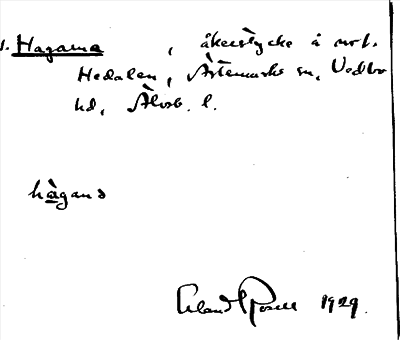 1. Hagarna, åkerstycke å nr 1.
Hedalen, Ärtemarks sn, Vedbo
hd, Älvsb. l.
hàgana
Erland Rosell 1929.